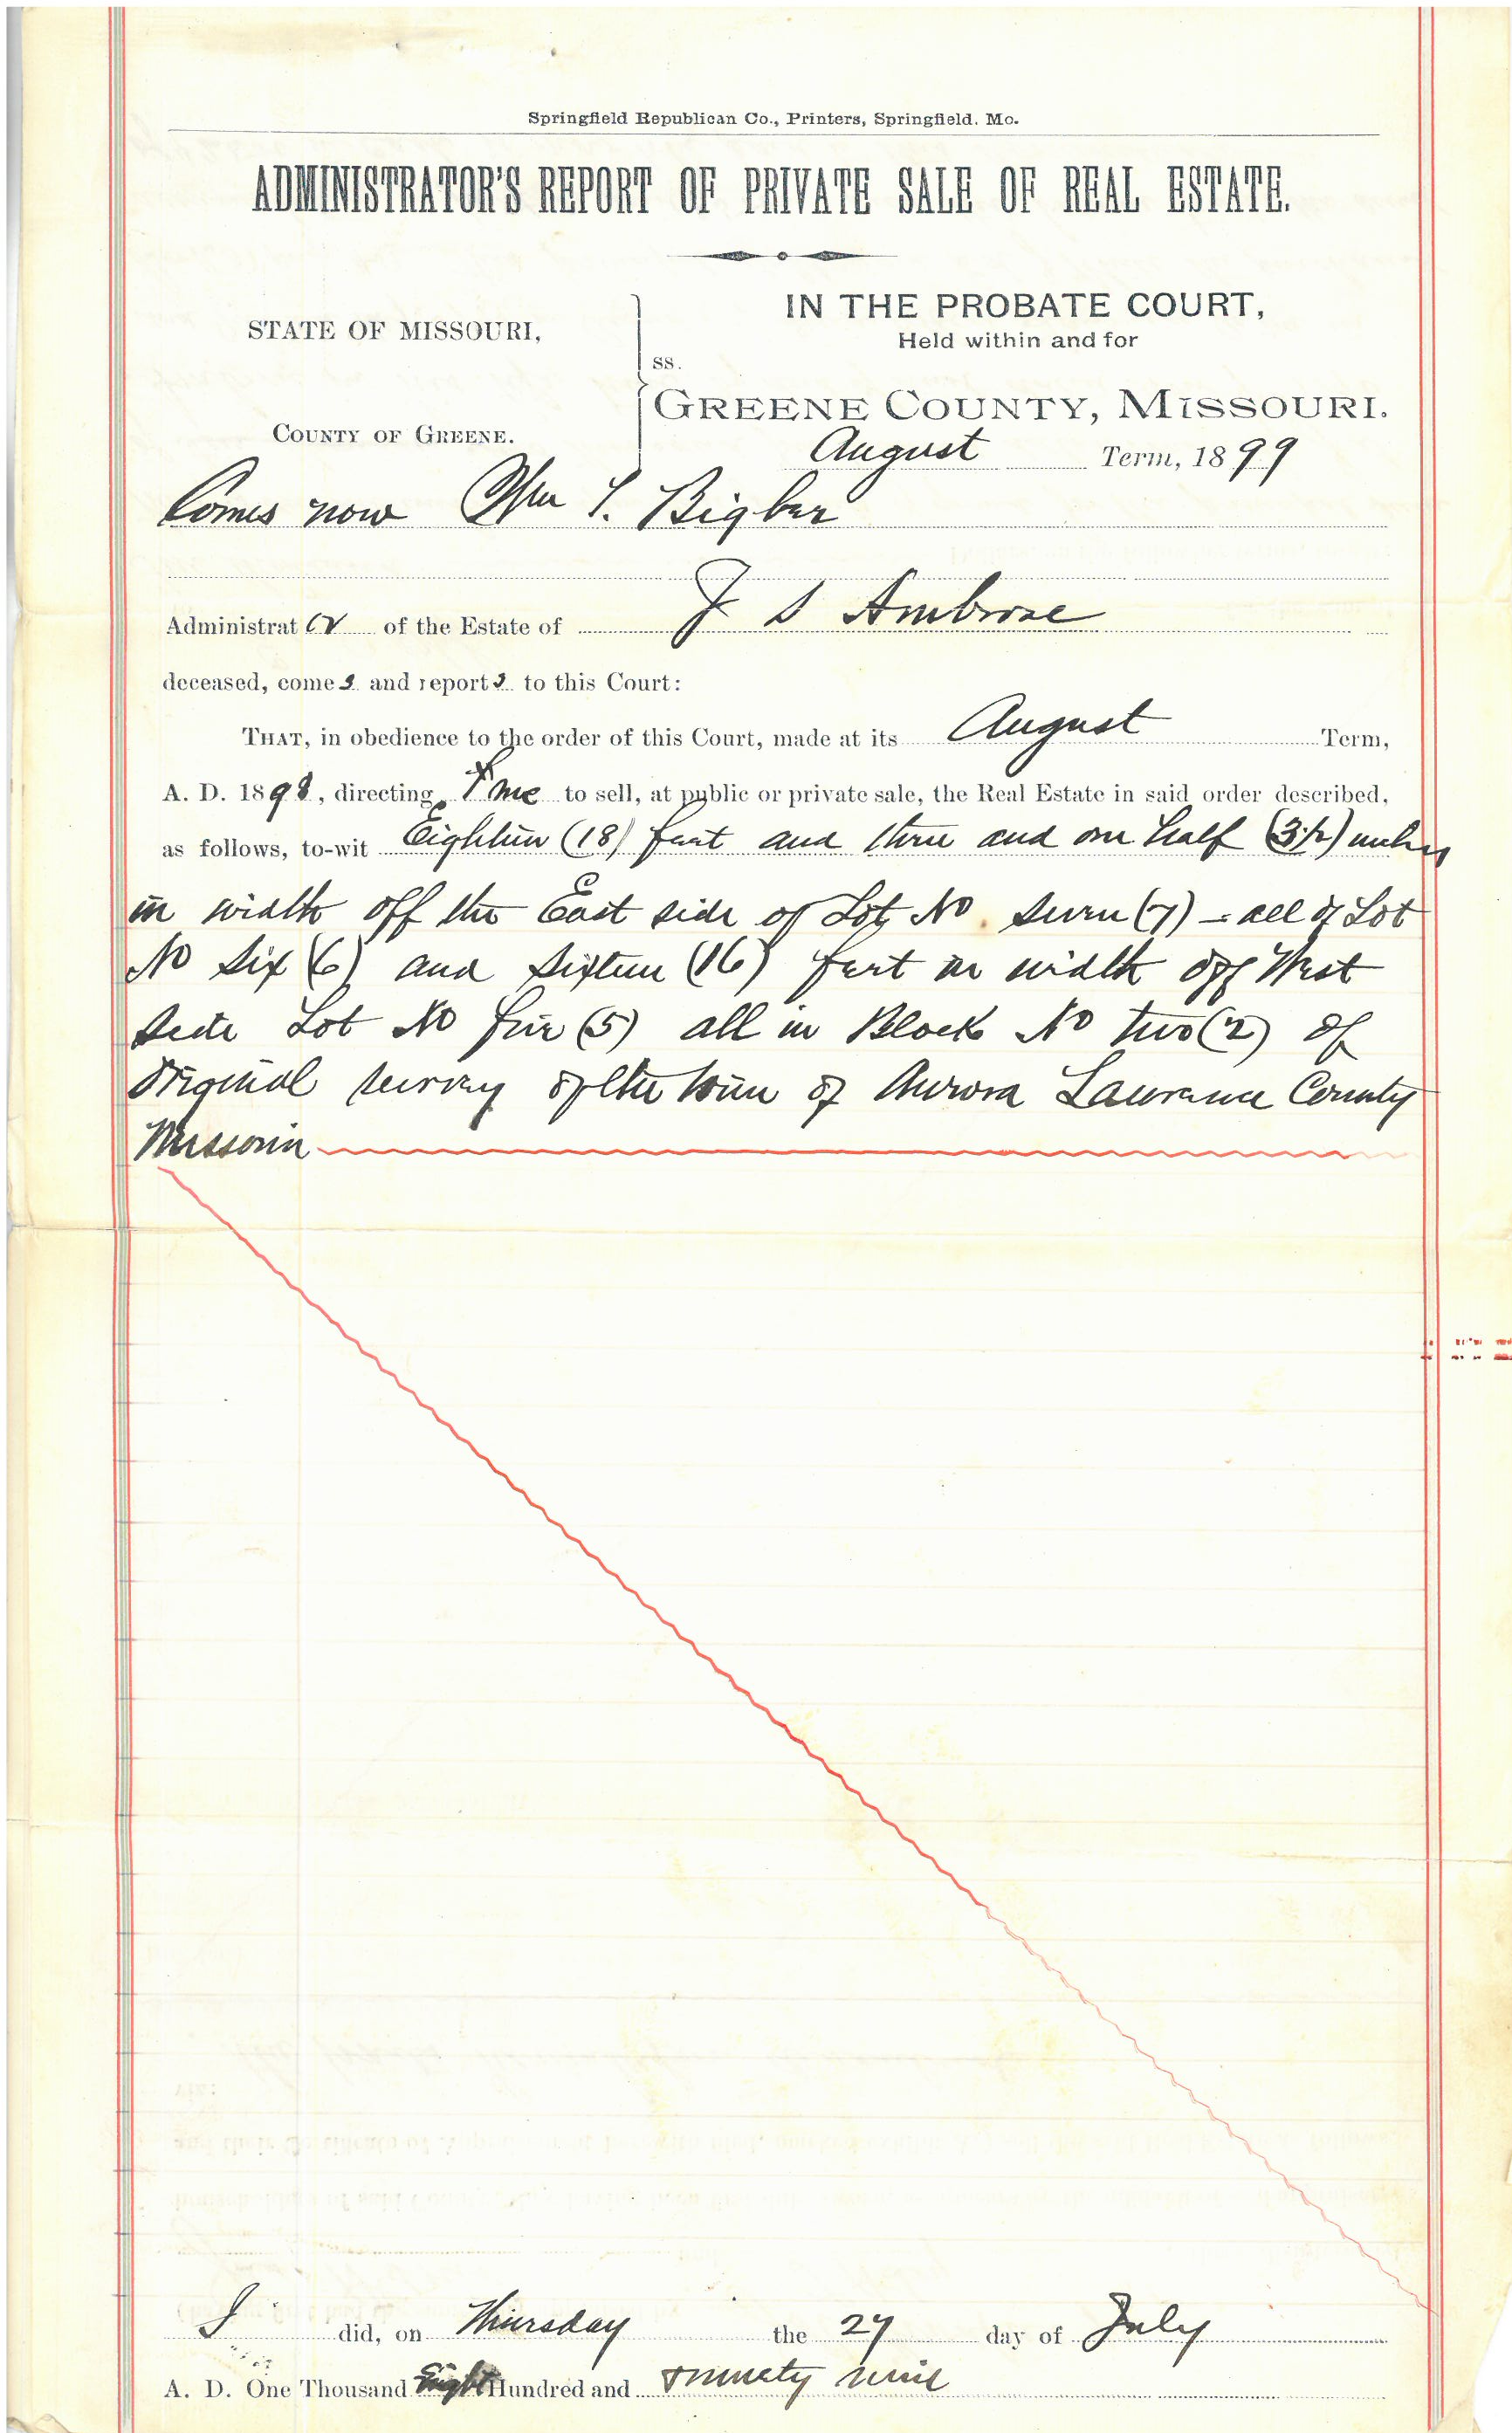 Springfield Republican Co., Printers, Springfield, Mo.
ADMINISTRATOR'S REPORT OF PRIVATE SALE OF REAL ESTATE.
STATE OF MISSOURI,
COUNTY OF GREENE.
ss.
IN THE PROBATE COURT,
Held within and for
GREENE COUNTY, MISSOURI.
August Term, 1899
Comes now Wm Bigber
Administrator of the Estate of J S Ambrose
deceased, comes and reports to this Court:
THAT, in obedience to the order of this Court, made at its August Term,
A. D. 1898, directing me to sell, at public or private sale, the Real Estate in said order described,
as follows, to-wit Eighteen (18) feet and three and one half (3½) inches
in width off the East side of Lot No. seven (7) - all of Lot
No Six (6) and Sixteen (16) feet in width off West
side Lot No five (5) all in Block No two (2) of
original survey of the town of Aurora Lawrence County
Missouri
I did, on Thursday the 27 day of July
A. D. One Thousand Eight Hundred and ninety nine